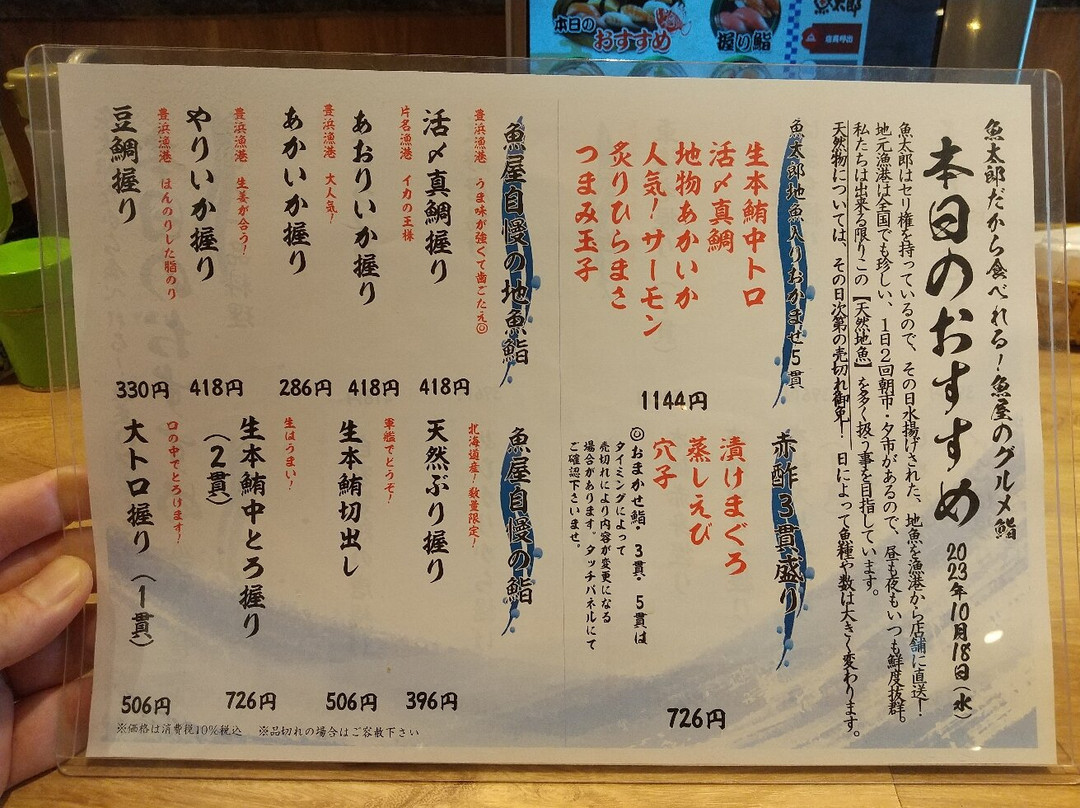 魚太郎だから食べれる！魚屋のグルメ鮨
本日のおすすめ
2023年10月18日（水）
魚太郎はセリ権を持っているので、その日水揚げされた、地魚を漁港から店舗に直送！
地元漁港は全国でも珍しい、1日2回朝市・夕市があるので、昼も夜もいつも鮮度抜群。
私たちは出来る限りこの【天然地魚】を多く扱う事を目指しています。
天然物については、その日次第の売切れ御免！――日によって魚種や数は大きく変わります。
魚太郎地魚入りおかませ5貫
生本鮪中トロ
活〆真鯛
地物あかいか
人気！サーモン
炙りひらまさ
つまみ玉子
1144円
赤酢3貫盛り
漬けまぐろ
蒸しえび
穴子
726円
◎おまかせ鮨・3貫・5貫は
タイミングによって
売切れにより内容が変更になる
場合があります。タッチパネルにて
ご確認下さいませ。
魚屋自慢の地魚鮨
豊浜漁港　うま味が強くて歯ごたえ◎
活〆真鯛握り
418円
片名漁港　イカの王様
あおりいか握り
418円
豊浜漁港　大人気！
あかいか握り
286円
豊浜漁港　生姜が合う！
やりいか握り
418円
豊浜漁港　ほんのりした脂のり
豆鯛握り
330円
魚屋自慢の鮨
北海道産！数量限定！
天然ぶり握り
396円
軍艦でどうぞ！
生本鮪切出し
506円
生はうまい！
生本鮪中とろ握り
（2貫）
726円
口の中でとろけます！
大トロ握り（1貫）
506円
※価格は消費税10％税込　※品切れの場合はご容赦下さい
本日の
おすすめ
握り鮨
魚太郎
店員呼出